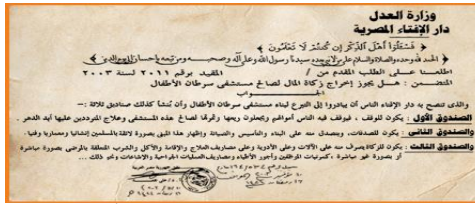 وزارة العدل
دار الإفتاء المصرية
﴿ فَسْئَلُوٓا۟ أَهْلَ ٱلذِّكْرِ إِن كُنتُمْ لَا تَعْلَمُونَ ﴾
الحمد لله وحده والصلاة والسلام على من لا نبي بعده سيدنا رسول الله وعلى آله وصحبه ومن تبعه بإحسان إلى يوم الدين
اطلعنا على الطلب المقدم من / المقيد برقم ٢٠١١ لسنة ٢٠٠٣
المتضمن : هل يجوز إخراج زكاة المال لصالح مستشفى سرطان الأطفال
الجواب
والذي ننصح به دار الإفتاء الناس أن يبادروا إلى التبرع لبناء مستشفى سرطان الأطفال وأن تُنشأ كذلك صناديق ثلاثة :-
الصندوق الأول : يكون للوقف ، فيوقف فيه الناس أموالهم ويجعلون ريعها وثمرتها لصالح هذه المستشفى وعلاج المترددين عليها أبد الدهر .
الصندوق الثاني : يكون للصدقات، ويتصدق منه على البناء والتأسيس والصيانة وإظهار هذا المبنى بصورة لائقة بالمسلمين إنشائيا ومعماريا وفنيا .
والصندوق الثالث : يكون للزكاة يصرف منه على الآلات وعلى الأدوية وعلى مصاريف العلاج والإقامة والأكل والشرب المتعلقة بالمرضى بصورة مباشرة
أو بصورة غير مباشرة ، كمرتبات الموظفين وأجور الأطباء ومصاريف العمليات الجراحية والإشاعات ونحو ذلك ...